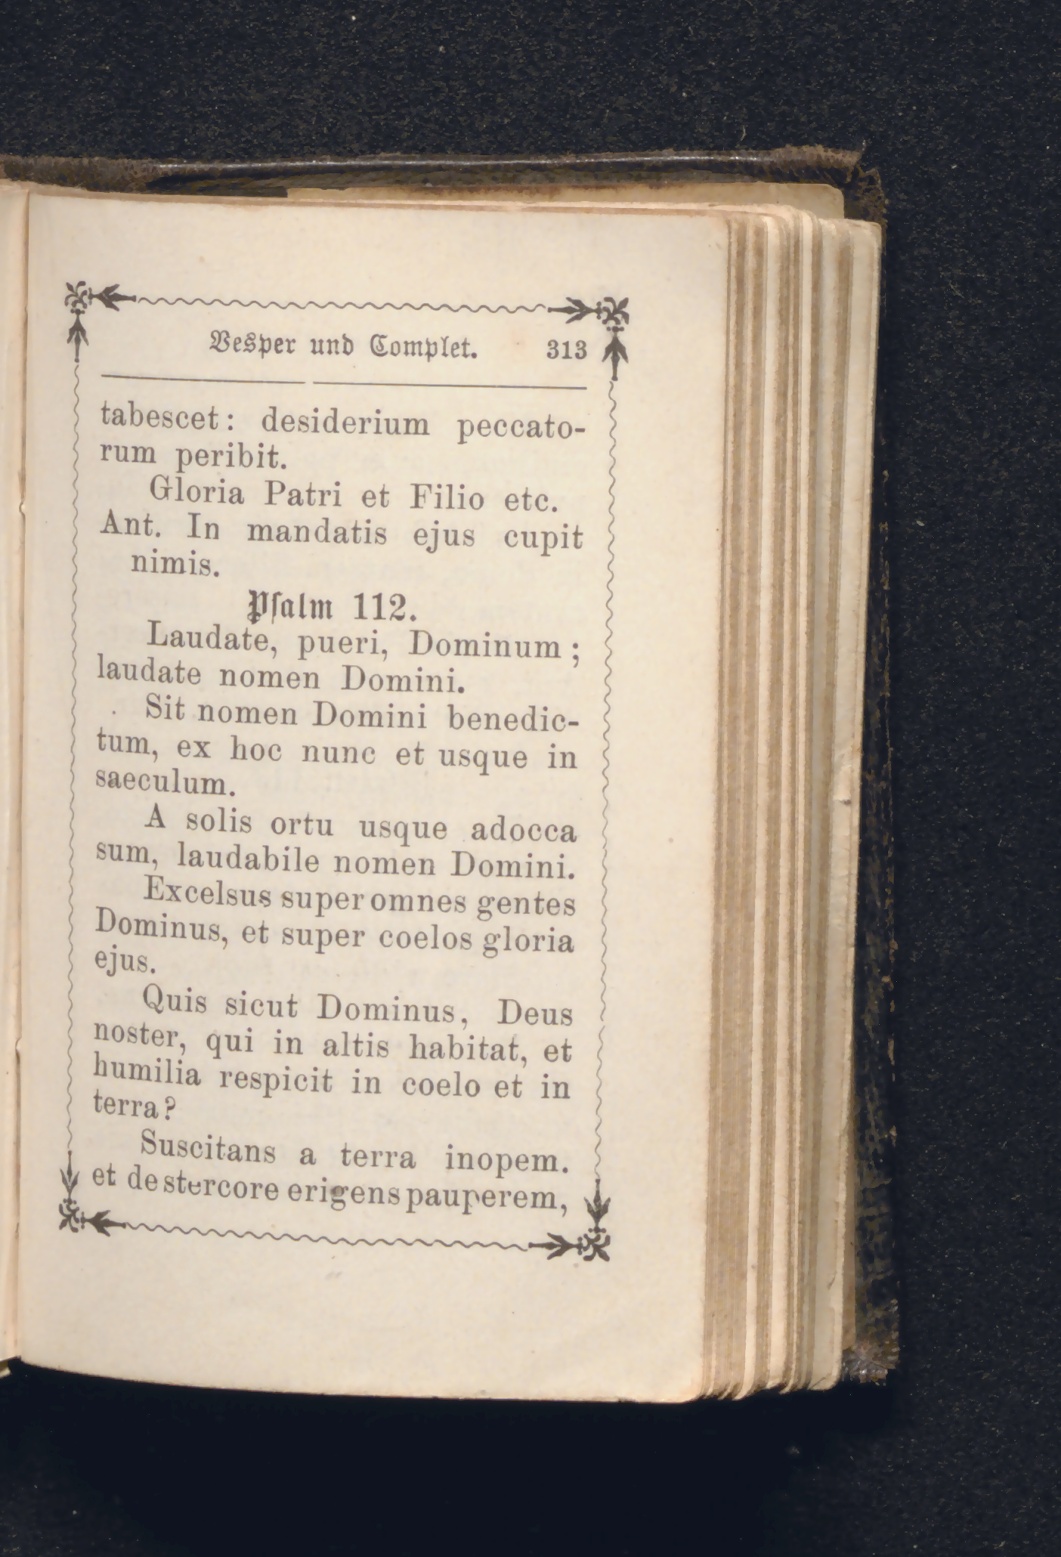 Vesper und Complet. 313
tabescet: desiderium peccato-
rum peribit.
Gloria Patri et Filio etc.
Ant. In mandatis ejus cupit
nimis.
Psalm 112.
Laudate, pueri, Dominum;
laudate nomen Domini.
Sit nomen Domini benedic-
tum, ex hoc nunc et usque in
saeculum.
A solis ortu usque adocca
sum, laudabile nomen Domini.
Excelsus super omnes gentes
Dominus, et super coelos gloria
ejus.
Quis sicut Dominus, Deus
noster, qui in altis habitat, et
humilia respicit in coelo et in
terra?
Suscitans a terra inopem.
et de stercore erigens pauperem,